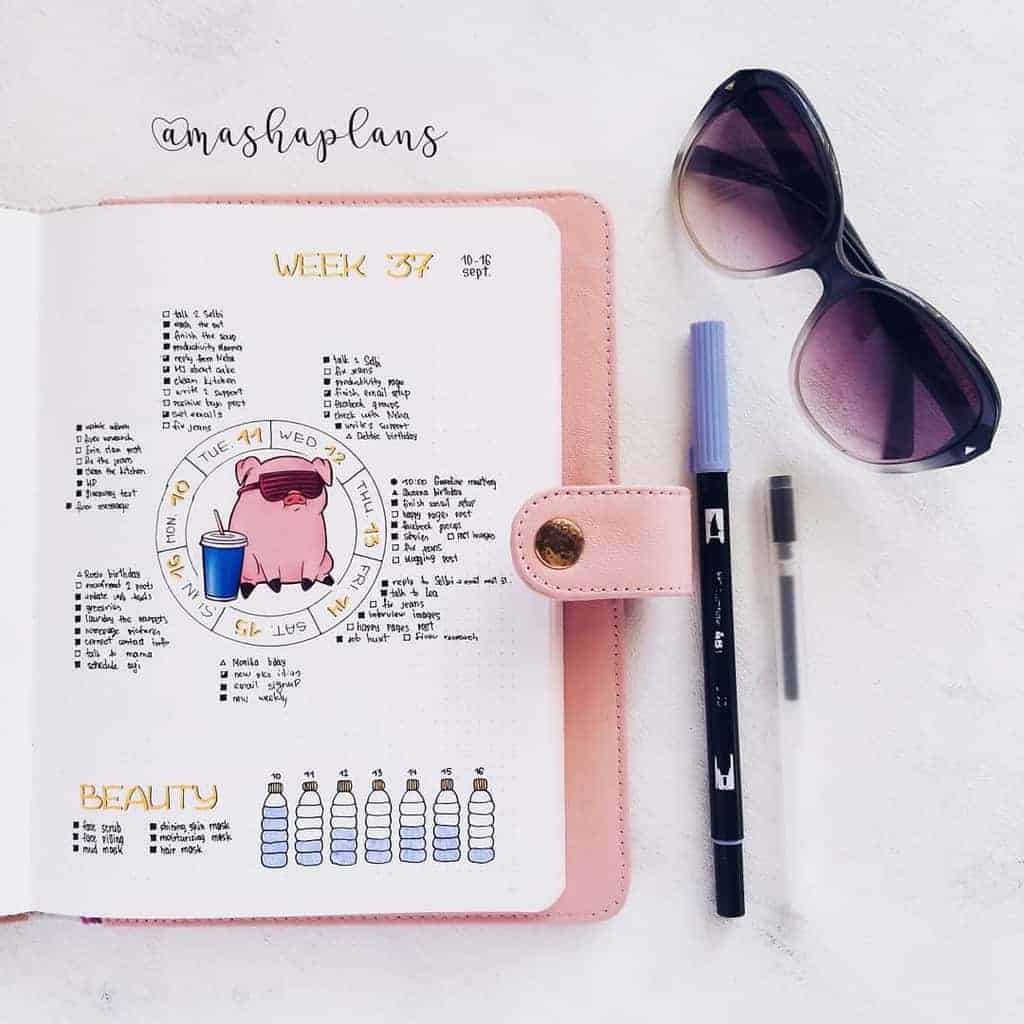 @mashaplans
WEEK 37
10-16
sept.
talk 2 Selbi
wash the
finish the soup
productivity planner
reply from Neha
MJ about cake
clean kitchen
write 2 support
positive bujo post
set emails
fix jeans
talk 2 Selbi
fix jeans
productivity page
finish email setup
facebook groups
check with Neha
write 2 support
Debbie birthday
update
fiverr research
post
fix the jeans
clean the kitchen
HP
giveaway text
fiverr message
10:00 meeting
birthday
finish email setup
happy pages post
facebook groups
post images
fix jeans
blogging post
MON. 10
TUE. 11
WED. 12
THU. 13
FRI. 14
SAT. 15
SUN. 16
Rosie birthday
proofread 2 posts
update
groceries
laundry the
homepage pictures
correct contact info
talk to mama
schedule
reply to Selbi
talk to Lea
fix jeans
interview images
happy pages post
job hunt
fiverr research
Monika bday
new
email signup
new weekly
BEAUTY
face scrub
face
mud mask
shining skin mask
moisturizing mask
hair mask
10 11 12 13 14 15 16